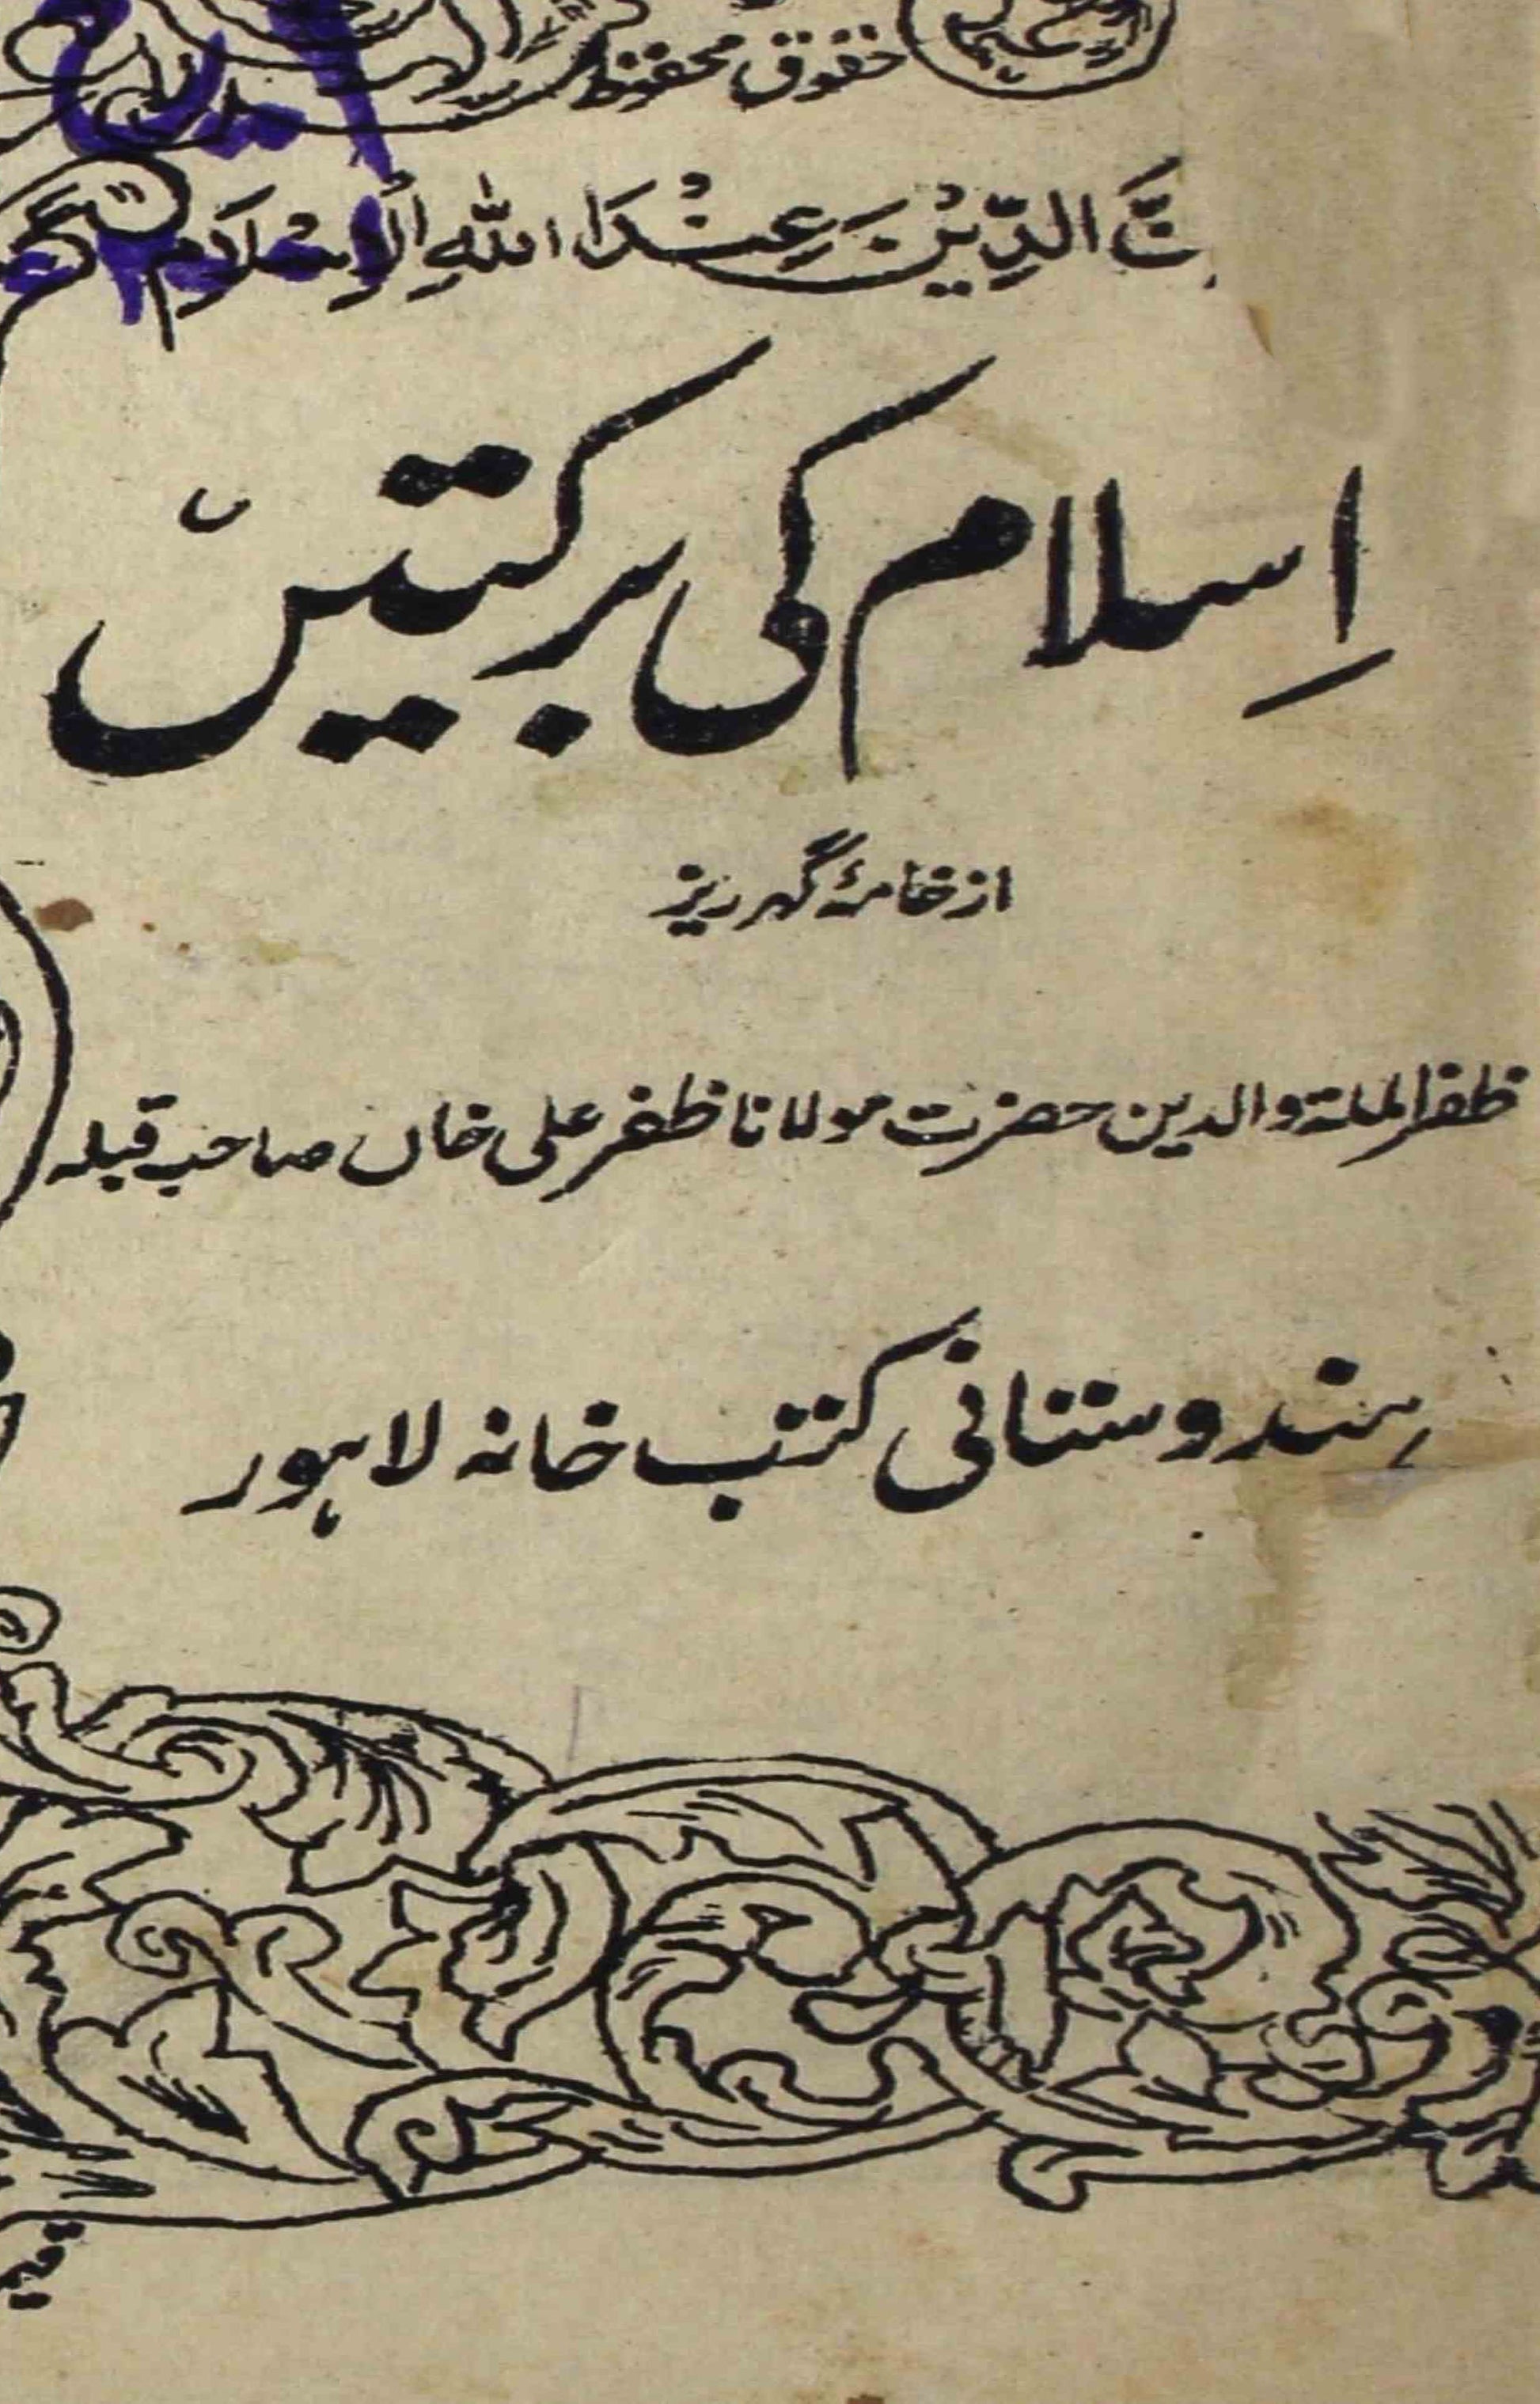 حقوق محفوظ
اِنَّ الدِّيْنَ عِنْدَ اللّٰهِ الْاِسْلَام
اِسلام کی برکتیں
از خامۂ گہر ریز
ظفر الملة والدین حضرت مولانا ظفر علی خاں صاحب قبلہ
ہندوستانی کتب خانہ لاہور